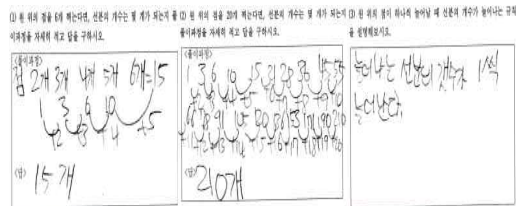 (1) 원 위의 점을 6개 찍는다면, 선분의 개수는 몇 개가 되는지 풀이과정을 자세히 적고 답을 구하시오.
<풀이과정>
점 2개 3개 4개 5개 6개=15
1 3 6 10
+2 +3 +4 +5
<답> 15개
(2) 원 위의 점을 20개 찍는다면, 선분의 개수는 몇 개가 되는지 풀이과정을 자세히 적고 답을 구하시오.
<풀이과정>
1 3 6 10 15 21 28 36 45 55
66 78 91 105 120 136 153 171 190 210
<답> 210개
(3) 원 위의 점이 하나씩 늘어날 때 선분의 개수가 늘어나는 규칙을 설명해보시오.
늘어나는 선분의 갯수가 1씩
늘어난다.